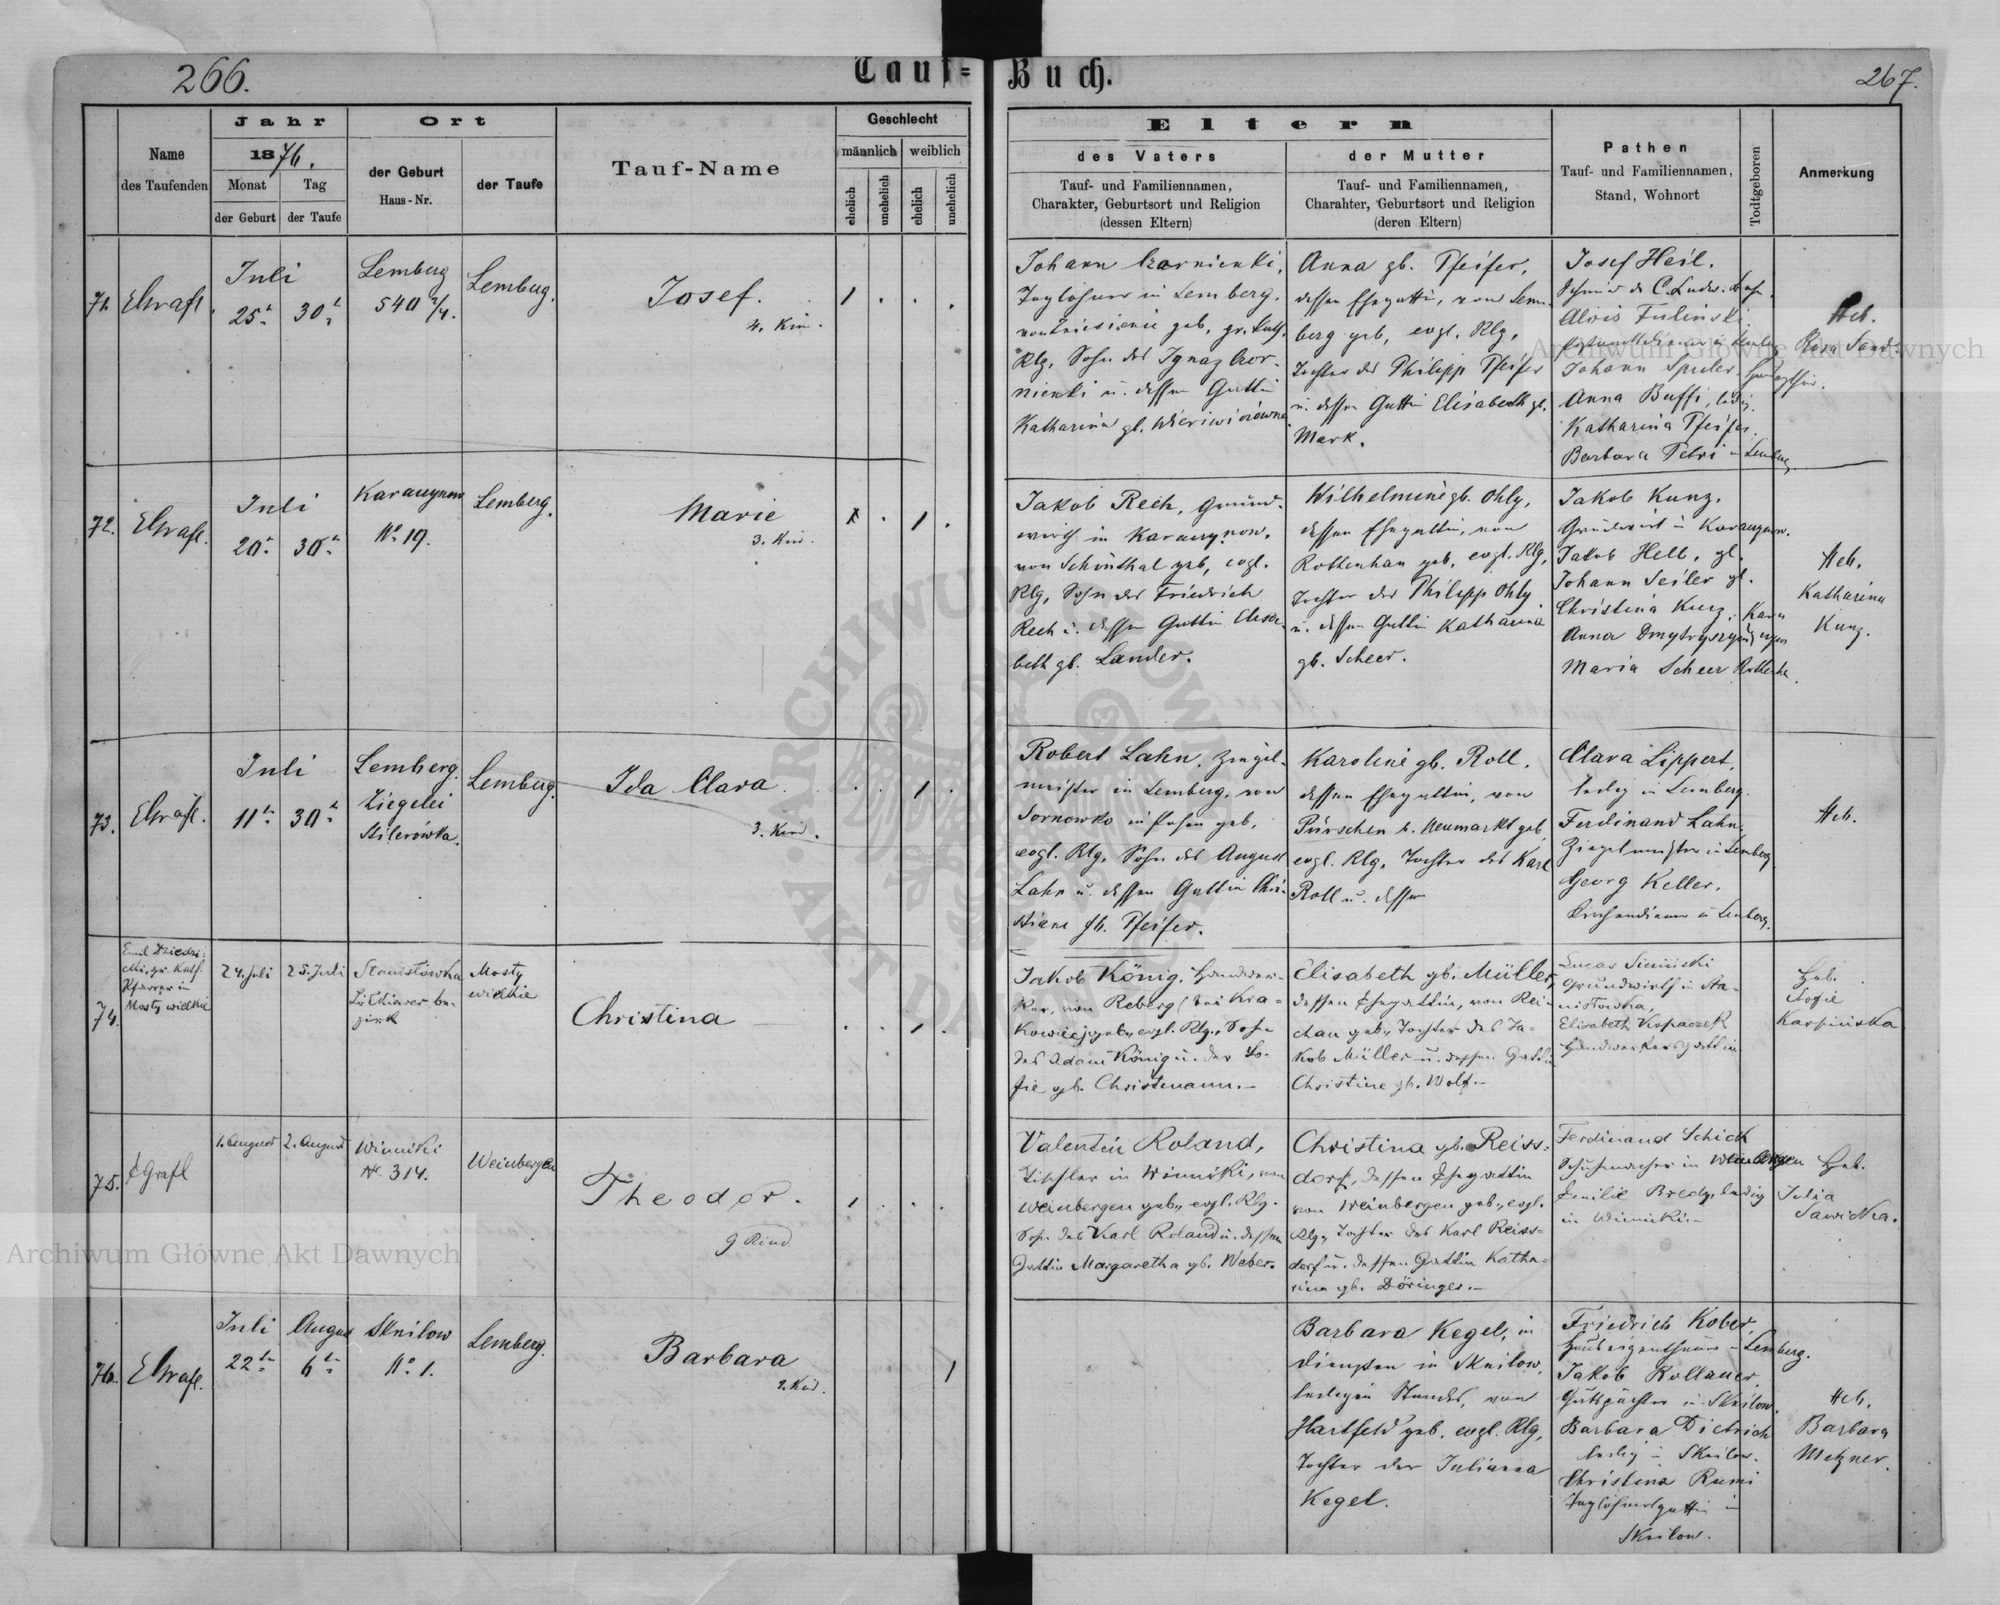 266.
Tauf=
Buch.
267.
Name
des Taufenden
Jahr
1876.
Monat
der Geburt
Tag
der Taufe
Ort
der Geburt
Haus-Nr.
der Taufe
Tauf-Name
Geschlecht
männlich
weiblich
ehelich
unehelich
ehelich
unehelich
Eltern
des Vaters
Tauf- und Familiennamen,
Charakter, Geburtsort und Religion
(dessen Eltern)
der Mutter
Tauf- und Familiennamen,
Charahter, Geburtsort und Religion
(deren Eltern)
Pathen
Tauf- und Familiennamen,
Stand, Wohnort
Todtgeboren
Anmerkung
71.
Juli
25t
30t
Lemberg
540 2/4.
Lemberg.
Josef.
4. Kin.
Johann
in Lemberg,
geb, gr. kath.
Rlg, Sohn des Ignaz
u. dessen Gattin
Katharina gb.
Anna gb. Pfeifer,
dessen Ehegattin, von Lem-
berg geb, evgl. Rlg,
Tochter des Philipp Pfeifer
u. dessen Gattin Elisabeth gb.
Mark.
Josef Heil.
Alois Fulinski.
Johann
Anna Buffi, ledig.
Katharina Pfeifer.
Barbara Petri in Lemberg
Heb.
Rosa
72.
Juli
20t
30t
No 19.
Lemberg.
Marie
3. Kind.
Jakob Rech, Grund-
wirth in
von Schönthal geb, evgl.
Rlg, Sohn des Friedrich
Rech u. dessen Gattin Elisa-
beth gb. Lander.
Wilhelmine gb. Ohly,
dessen Ehegattin, von
Rottenhan geb, evgl. Rlg,
Tochter des Philipp Ohly
u. dessen Gattin Katharina
gb. Scheer.
Jakob Kunz.
Grundwirth in
Jakob Hell, gl.
Johann Seiler gl.
Christina Kurz,
Anna
Maria Scheer
Heb.
Katharina
Kunz.
73.
Juli
11t
30t
Lemberg.
Ziegelei
Stilerówka.
Lemberg.
Ida Clara.
3. Kind.
Robert Lahn, Ziegel-
meister in Lemberg, von
in Posen geb,
evgl. Rlg, Sohn des August
Lahn u. dessen Gattin Chri-
stiane gb. Pfeifer.
Karoline gb. Roll,
dessen Ehegattin, von
Pürschen b. Neumarkt geb,
evgl. Rlg, Tochter des Karl
Roll u. dessen
Clara Lippert,
ledig in Lemberg.
Ferdinand Lahn,
Ziegelmeister in Lemberg
Georg Keller.
Kirchendiener in Lemberg.
Heb.
74.
Emil
gr. Kath.
Pfarrer in
Mosty wielkie
24. Juli
25. Juli
Stanisłówka
Żółkiewer be-
zirk
Mosty
wielkie
Christina
Jakob König, Handwer-
ker, von Reberg (bei Kra-
kowiec) geb., evgl. Rlg., Sohn
des Adam König u. der So-
fie gb. Christmann.—
Elisabeth gb. Müller,
dessen Ehegattin, von Rei-
chau geb., Tochter des Ja-
kob Müller u. dessen Gattin
Christine gb. Wolf.—
Lucas
Grundwirth in Sta-
nisłówka,
Elisabeth Kopaczek
Handwerkersgattin
Heb.
Sofie
Karpińska
75.
1. August
2. August
Winniki
Nr. 314.
Weinbergen
Theodor.
9 Kind
Valentin Roland,
Tischler in Winniki, von
Weinbergen geb., evgl. Rlg.
Sohn des Karl Roland u. dessen
Gattin Margaretha gb. Weber.
Christina gb. Reiss-
dorf, dessen Ehegattin
von Weinbergen geb., evgl.
Rlg., Tochter des Karl Reiss-
dorf u. dessen Gattin Katha-
rina gb. Döringer.—
Ferdinand Schick
Schuhmacher in Weinbergen
Emilie Bredy, ledig
in Winniki.—
Heb.
Julia
Sawicka.
76.
Juli
22tn
August
6tn
Sknilow
No 1.
Lemberg.
Barbara
2. Kind.
Barbara Kegel, in
Diensten in Sknilow,
ledigen Standes, von
Hartfeld geb, evgl. Rlg,
Tochter der Julianna
Kegel.
Friedrich Kober,
Hauseigenthümer in Lemberg.
Jakob Rollauer,
Gutspächter in Sknilow.
Barbara Dietrich
ledig in Sknilow.
Christina Rumi
Taglöhnersgattin in
Sknilow.
Heb.
Barbara
Metzner.
Archiwum Główne Akt Dawnych
Archiwum Główne Akt Dawnych